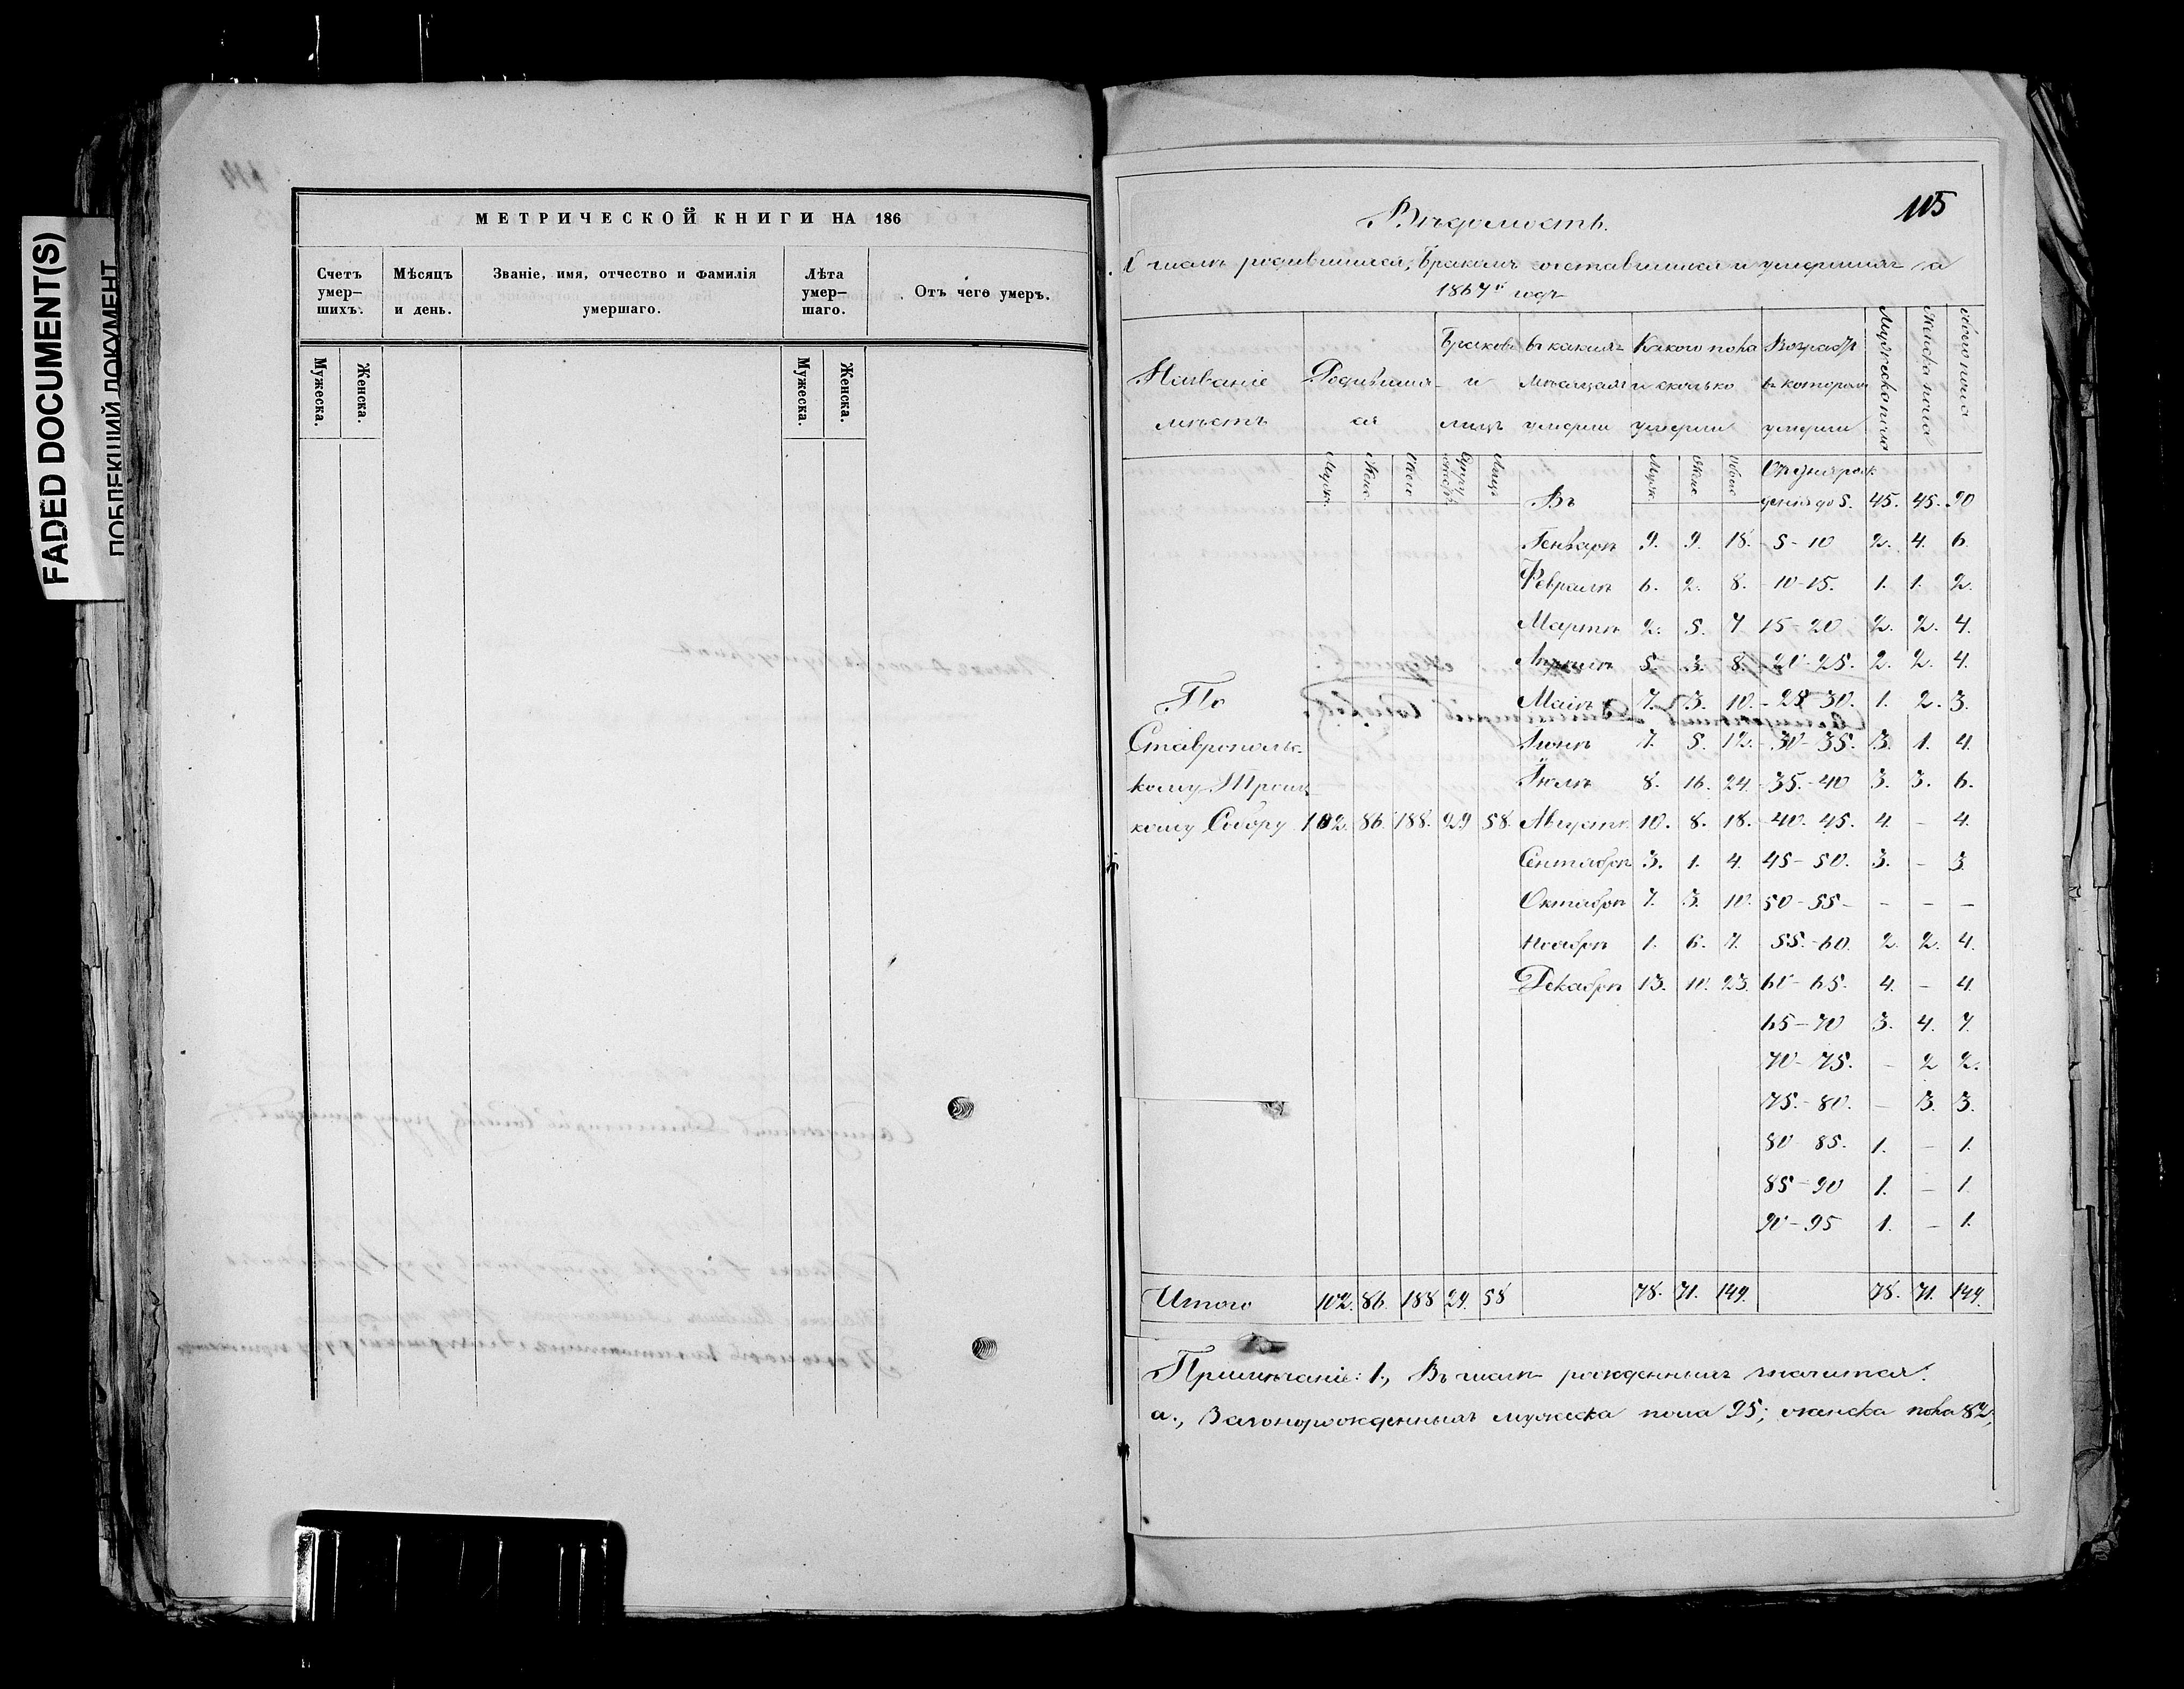 FADED DOCUMENT(S)
ПОБЛЕКШИЙ ДОКУМЕНТ
МЕТРИЧЕСКОЙ КНИГИ НА 186
Счетъ умер-шихъ.
Мѣсяцъ и день.
Званіе, имя, отчество и фамилія умершаго.
Лѣта умер-шаго.
Отъ чего умеръ.
Мужеска.
Женска.
Мужеска.
Женска.
115
Вѣдомость.
О числѣ родившихся, бракомъ сочетавшихся и умершихъ за
1867й годъ
Названіе мѣстъ
Родившихся
Браковъ и лицъ
въ какихъ мѣсяцахъ умерли
Какого пола и сколько умерли
Возрастъ въ которомъ умерли
Мужеска пола
Женска пола
Обоего пола
Муж. Жен. Лицъ Муж. Жен.
Въ до 5. 45. 45. 90
Генварѣ 9. 9. 18. 5-10 2. 4. 6.
Февралѣ 6. 2. 8. 10-15. 1. 1. 2.
Мартѣ 2. 5. 7 15-20 2. 2. 4.
Апрѣлѣ 5. 3. 8. 20-25. 2. 2. 4.
По Маіѣ 7. 3. 10. 25-30. 1. 2. 3.
Ставрополь- Іюнѣ 7. 5. 12. 30-35. 3. 1. 4.
скому Троиц- Іюлѣ 8. 16. 24. 35-40 3. 3. 6.
кому Собору 102. 86. 188. 29 58. Августѣ 10. 8. 18. 40-45. 4. - 4.
Сентябрѣ 3. 1. 4. 45-50. 3. - 3.
Октябрѣ 7. 3. 10. 50-55 - - -
Ноябрѣ 1. 6. 7. 55-60. 2. 2. 4.
Декабрѣ 13. 10. 23. 60-65. 4. - 4.
65-70 3. 4. 7.
70-75. - 2 2.
75-80. - 3. 3.
80-85. 1. - 1.
85-90 1. - 1.
90-95 1. - 1.
Итого 102. 86. 188 29. 58 78. 71. 149. 78. 71. 149.
Примѣчаніе: 1., Въ числѣ рожденныхъ значится:
а., Законорожденныхъ мужеска пола 95; женска пола 82,